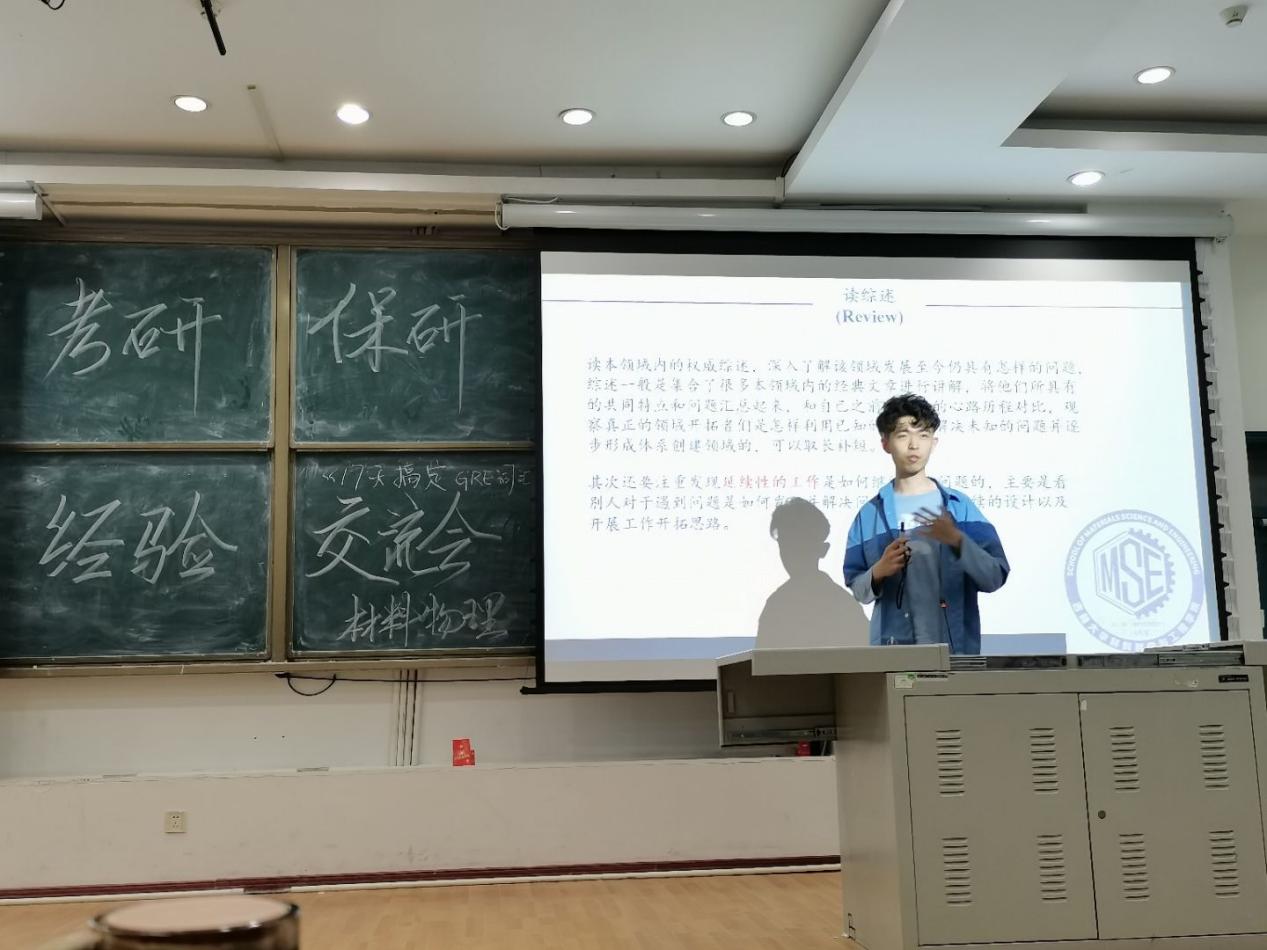 考研
保研
经验
《17天搞定GRE词汇
交流会
材料物理
读综述
(Review)
读本领域内的权威综述，深入了解该领域发展至今仍具有怎样的问题，
综述一般是集合了很多本领域内的经典文章进行讲解，将他们所具有
的共同特点和问题汇总起来，和自己之前 的心路历程对比，观
察真正的领域开拓者们是怎样利用已知 解决未知的问题并逐
步形成体系创建领域的，可以取长补短。
其次还要注重发现延续性的工作是如何继 问题的，主要是看
别人对于遇到问题是如何 并解决问 续的设计以及
开展工作开拓思路。
SCHOOL OF MATERIALS SCIENCE AND ENGINEERING
MSE